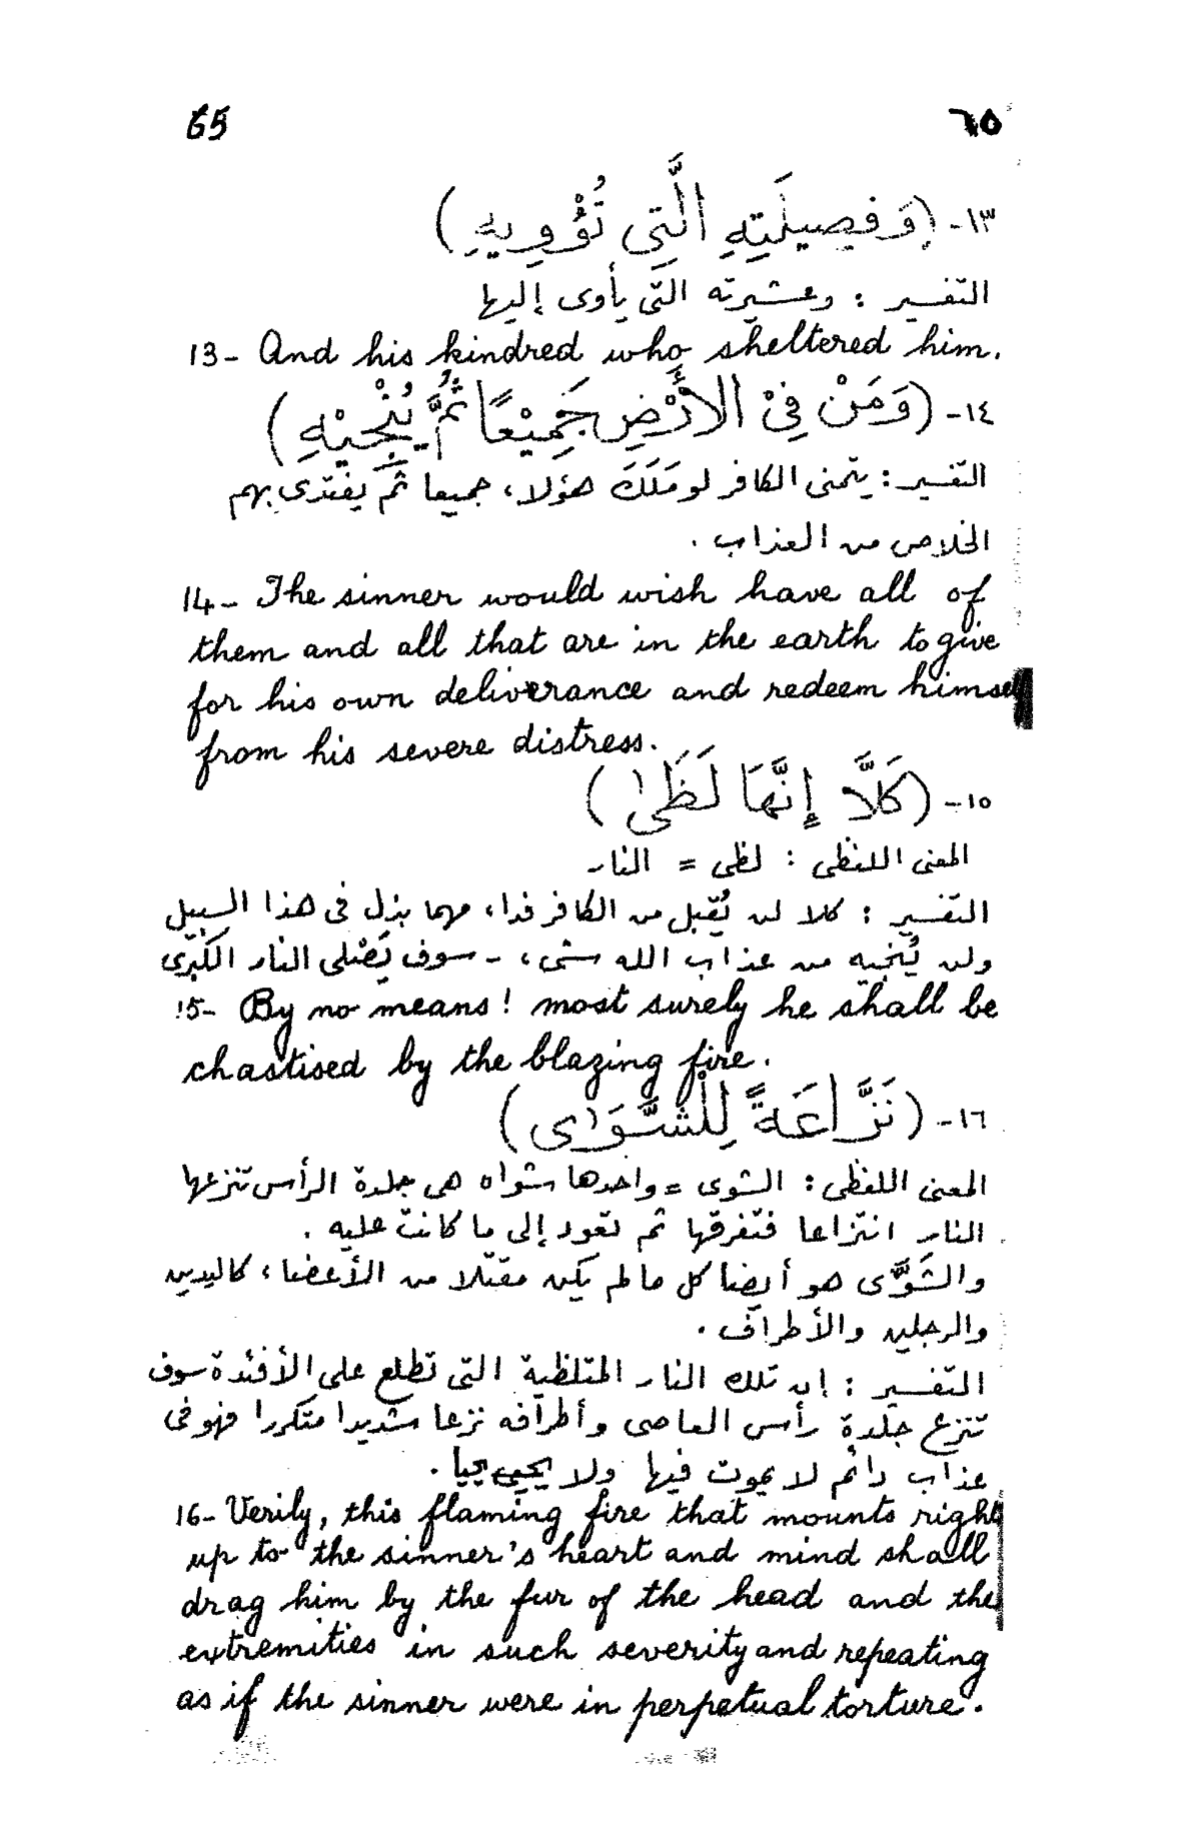 65 ٦٥
١٣- (وَفَصِيلَتِهِ الَّتِي تُؤْوِيهِ)
التفسير : وعشيرته التى يأوى إليها
13- And his kindred who sheltered him.
١٤- (وَمَنْ فِيْ الأَرْضِ جَمِيْعًا ثُمَّ يُنْجِيْهِ)
التفسير : يتمنى الكافر لو مَلَكَ هؤلاء جميعا ثم يفتدى بهم
الخلاص من العذاب .
14- The sinner would wish have all of
them and all that are in the earth to give
for his own deliverance and redeem himself
from his severe distress.
١٥- (كَلَّا إِنَّهَا لَظَىٰ)
المعنى اللفظى : لظى = النار
التفسير : كلا لن يُقبل من الكافر فداء مهما بذل فى هذا السبيل
ولن يُنجيه من عذاب الله شىء - سوف يَصْلى النار الكبرى
15- By no means! most surely he shall be
chastised by the blazing fire.
١٦- (نَزَّاعَةً لِلْشَّوَىٰ)
المعنى اللفظى : الشوى = واحدها شواه هى جلدة الرأس تنزعها
النار انتزاعا فتفرقها ثم تعود إلى ما كانت عليه .
والشَّوَى هو أيضا كل ما لم يكن مقتلا من الأعضاء كاليدين
والرجلين والأطراف .
التفسير : إن تلك النار المتلظية التى تطلع على الأفئدة سوف
تنزع جلدة رأس العاصى وأطرافه نزعا شديدا متكررا فهو فى
عذاب دائم لا يموت فيها ولا يحيا .
16- Verily, this flaming fire that mounts right
up to the sinner's heart and mind shall
drag him by the fur of the head and the
extremities in such severity and repeating
as if the sinner were in perpetual torture.